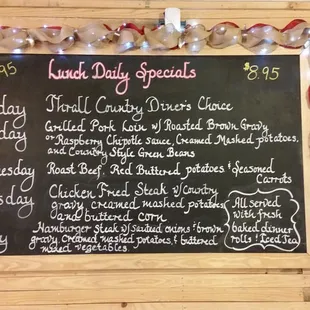 Lunch Daily Specials
95
$8.95
day Thrall Country Diner's Choice
day Grilled Pork Loin w/ Roasted Brown Gravy
or Raspberry Chipotle sauce, Creamed Mashed potatoes,
and Country Style Green Beans
esday Roast Beef, Red Buttered potatoes & Seasoned
Carrots
sday Chicken Fried Steak w/ Country
gravy, creamed mashed potatoes
and buttered corn
y Hamburger Steak w/ Sauted onions & brown
gravy, Creamed mashed potatoes, & buttered
mixed vegetables
All served
with fresh
baked dinner
rolls & Iced Tea